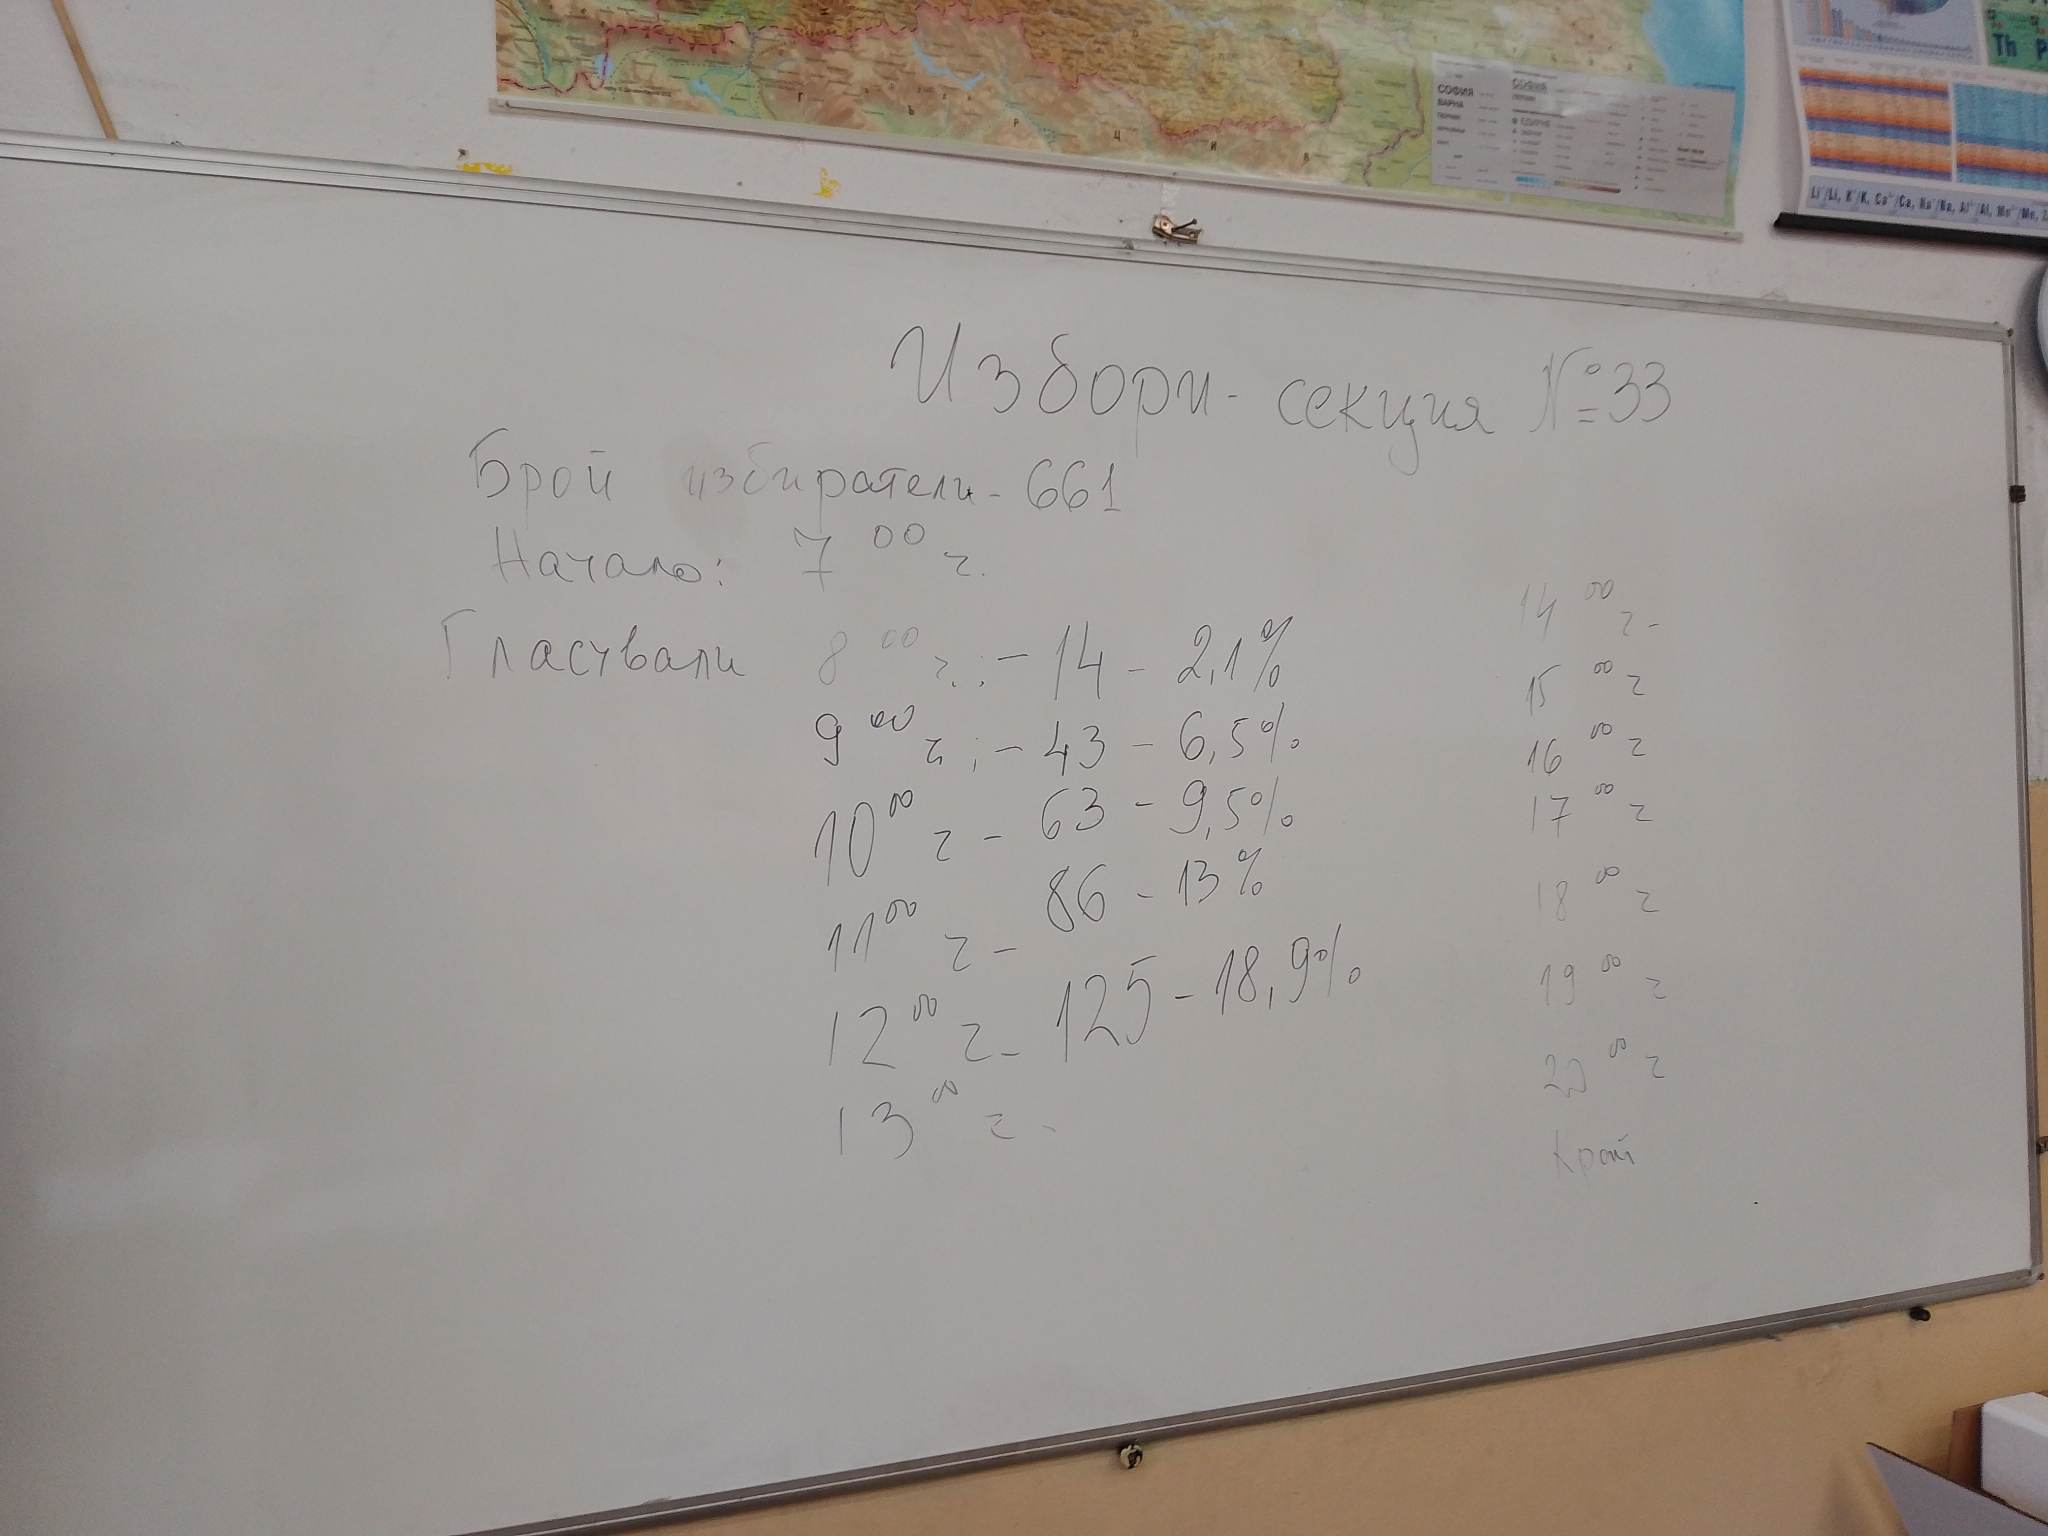 СОФИЯ
ВАРНА
Г Ъ Р Ц И Я
Th
Li⁺/Li, K⁺/K, Ca²⁺/Ca, Na⁺/Na, Al³⁺/Al, Mn²⁺/Mn,
Избори - секция №33
Брой избиратели - 661
Начало: 7 00 ч.
Гласували 8 00 ч.: - 14 - 2,1%
9 00 ч; - 43 - 6,5%
10 00 ч - 63 - 9,5%
11 00 ч - 86 - 13%
12 00 ч - 125 - 18,9%
13 00 ч -
14 00 ч -
15 00 ч
16 00 ч
17 00 ч
18 00 ч
19 00 ч
20 00 ч
Край